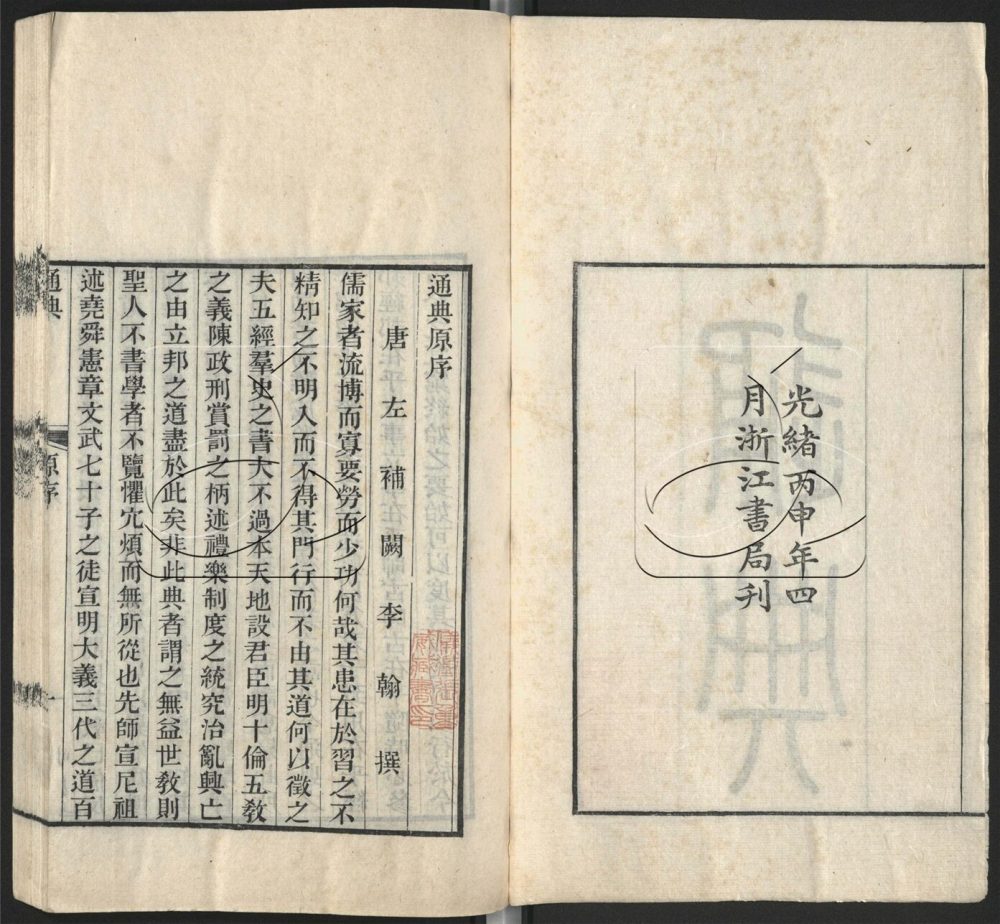 光緒丙申年四
月浙江書局刊
通典原序
唐左補闕李翰撰
儒家者流博而寡要勞而少功何哉其患在於習之不
精知之不明入而不得其門行而不由其道何以徵之
夫五經羣史之書大不過本天地設君臣明十倫五教
之義陳政刑賞罰之柄述禮樂制度之統究治亂興亡
之由立邦之道盡於此矣非此典者謂之無益世教則
聖人不書學者不覽懼宂煩而無所從也先師宣尼祖
述堯舜憲章文武七十子之徒宣明大義三代之道百
通典
原序
一